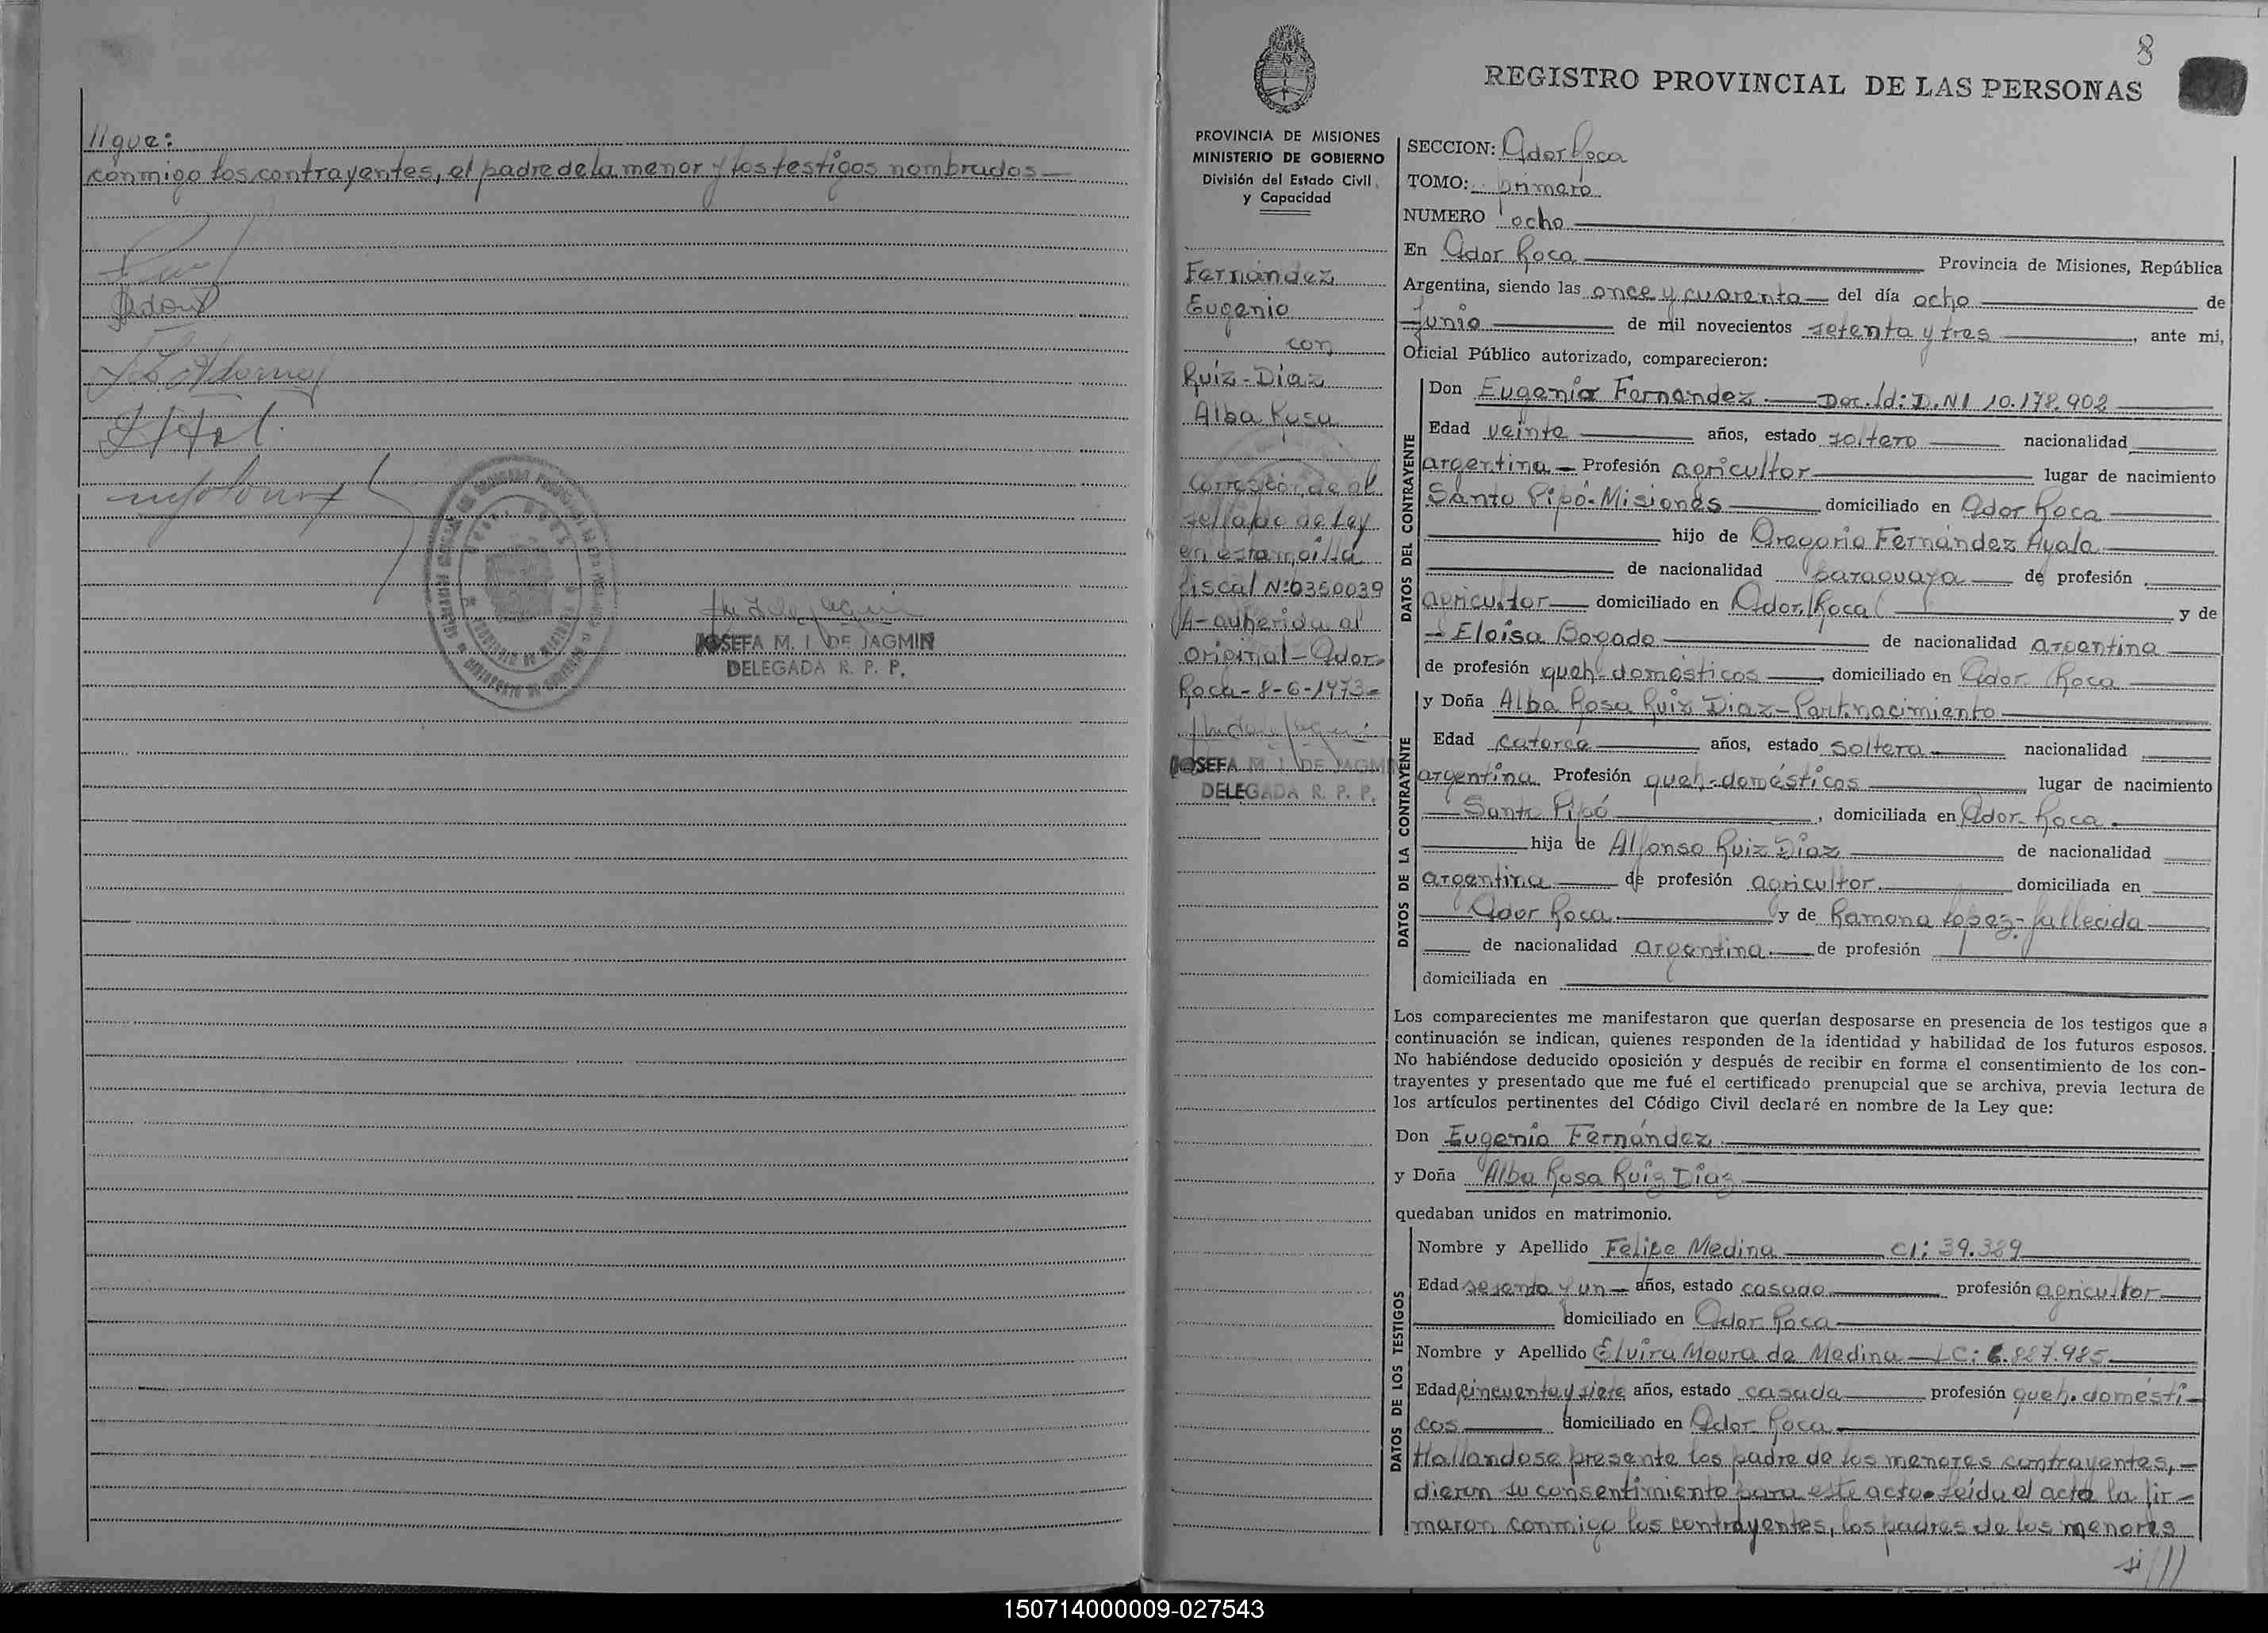 //gue:
conmigo los contrayentes, el padre de la menor y los testigos nombrados—
JOSEFA M. I. DE JAGMIN
DELEGADA R. P. P.
8
REGISTRO PROVINCIAL DE LAS PERSONAS
PROVINCIA DE MISIONES
MINISTERIO DE GOBIERNO
División del Estado Civil
y Capacidad
Fernández
Eugenio
con
Ruiz-Diaz
Alba Rosa
Corresponde al
sellado de Ley
en estampilla
fiscal Nº0350039
A-adherida al
original-Ador
Roca-8-6-1973-
JOSEFA M. I. DE JAGMIN
DELEGADA R. P. P.
SECCION: Ador Roca
TOMO: primero
NUMERO ocho
En Ador Roca Provincia de Misiones, República
Argentina, siendo las once y cuarenta del día ocho de
Junio de mil novecientos setenta y tres, ante mi,
Oficial Público autorizado, comparecieron:
DATOS DEL CONTRAYENTE
Don Eugenio Fernandez — Doc. Id: D.NI 10.178.902
Edad veinte años, estado soltero nacionalidad
argentina — Profesión agricultor lugar de nacimiento
Santo Pipó-Misiones domiciliado en Ador Roca
hijo de Gregorio Fernández Ayala
de nacionalidad paraguaya de profesión
agricultor domiciliado en Ador Roca y de
Eloisa Bogado de nacionalidad argentina
de profesión queh-domésticos domiciliado en Ador Roca
DATOS DE LA CONTRAYENTE
y Doña Alba Rosa Ruiz Diaz-Part.nacimiento
Edad catorce años, estado soltera nacionalidad
argentina Profesión queh-domésticos lugar de nacimiento
Santo Pipó, domiciliada en Ador Roca
hija de Alfonso Ruiz Diaz de nacionalidad
argentina de profesión agricultor domiciliada en
Ador Roca y de Ramona Lopez-fallecida
de nacionalidad argentina de profesión
domiciliada en
Los comparecientes me manifestaron que querían desposarse en presencia de los testigos que a
continuación se indican, quienes responden de la identidad y habilidad de los futuros esposos.
No habiéndose deducido oposición y después de recibir en forma el consentimiento de los con-
trayentes y presentado que me fué el certificado prenupcial que se archiva, previa lectura de
los artículos pertinentes del Código Civil declaré en nombre de la Ley que:
Don Eugenio Fernández
y Doña Alba Rosa Ruiz Diaz
quedaban unidos en matrimonio.
DATOS DE LOS TESTIGOS
Nombre y Apellido Felipe Medina CI: 39.389
Edad sesenta y un años, estado casado profesión agricultor
domiciliado en Ador Roca
Nombre y Apellido Elvira Moura de Medina — LC: 6.827.985
Edad cincuenta y siete años, estado casada profesión queh. domésti-
cos domiciliado en Ador Roca
Hallandose presente los padre de los menores contrayentes,—
dieron su consentimiento para este acto. Leída el acta la fir-
maron conmigo los contrayentes, los padres de los menores
si///
150714000009-027543